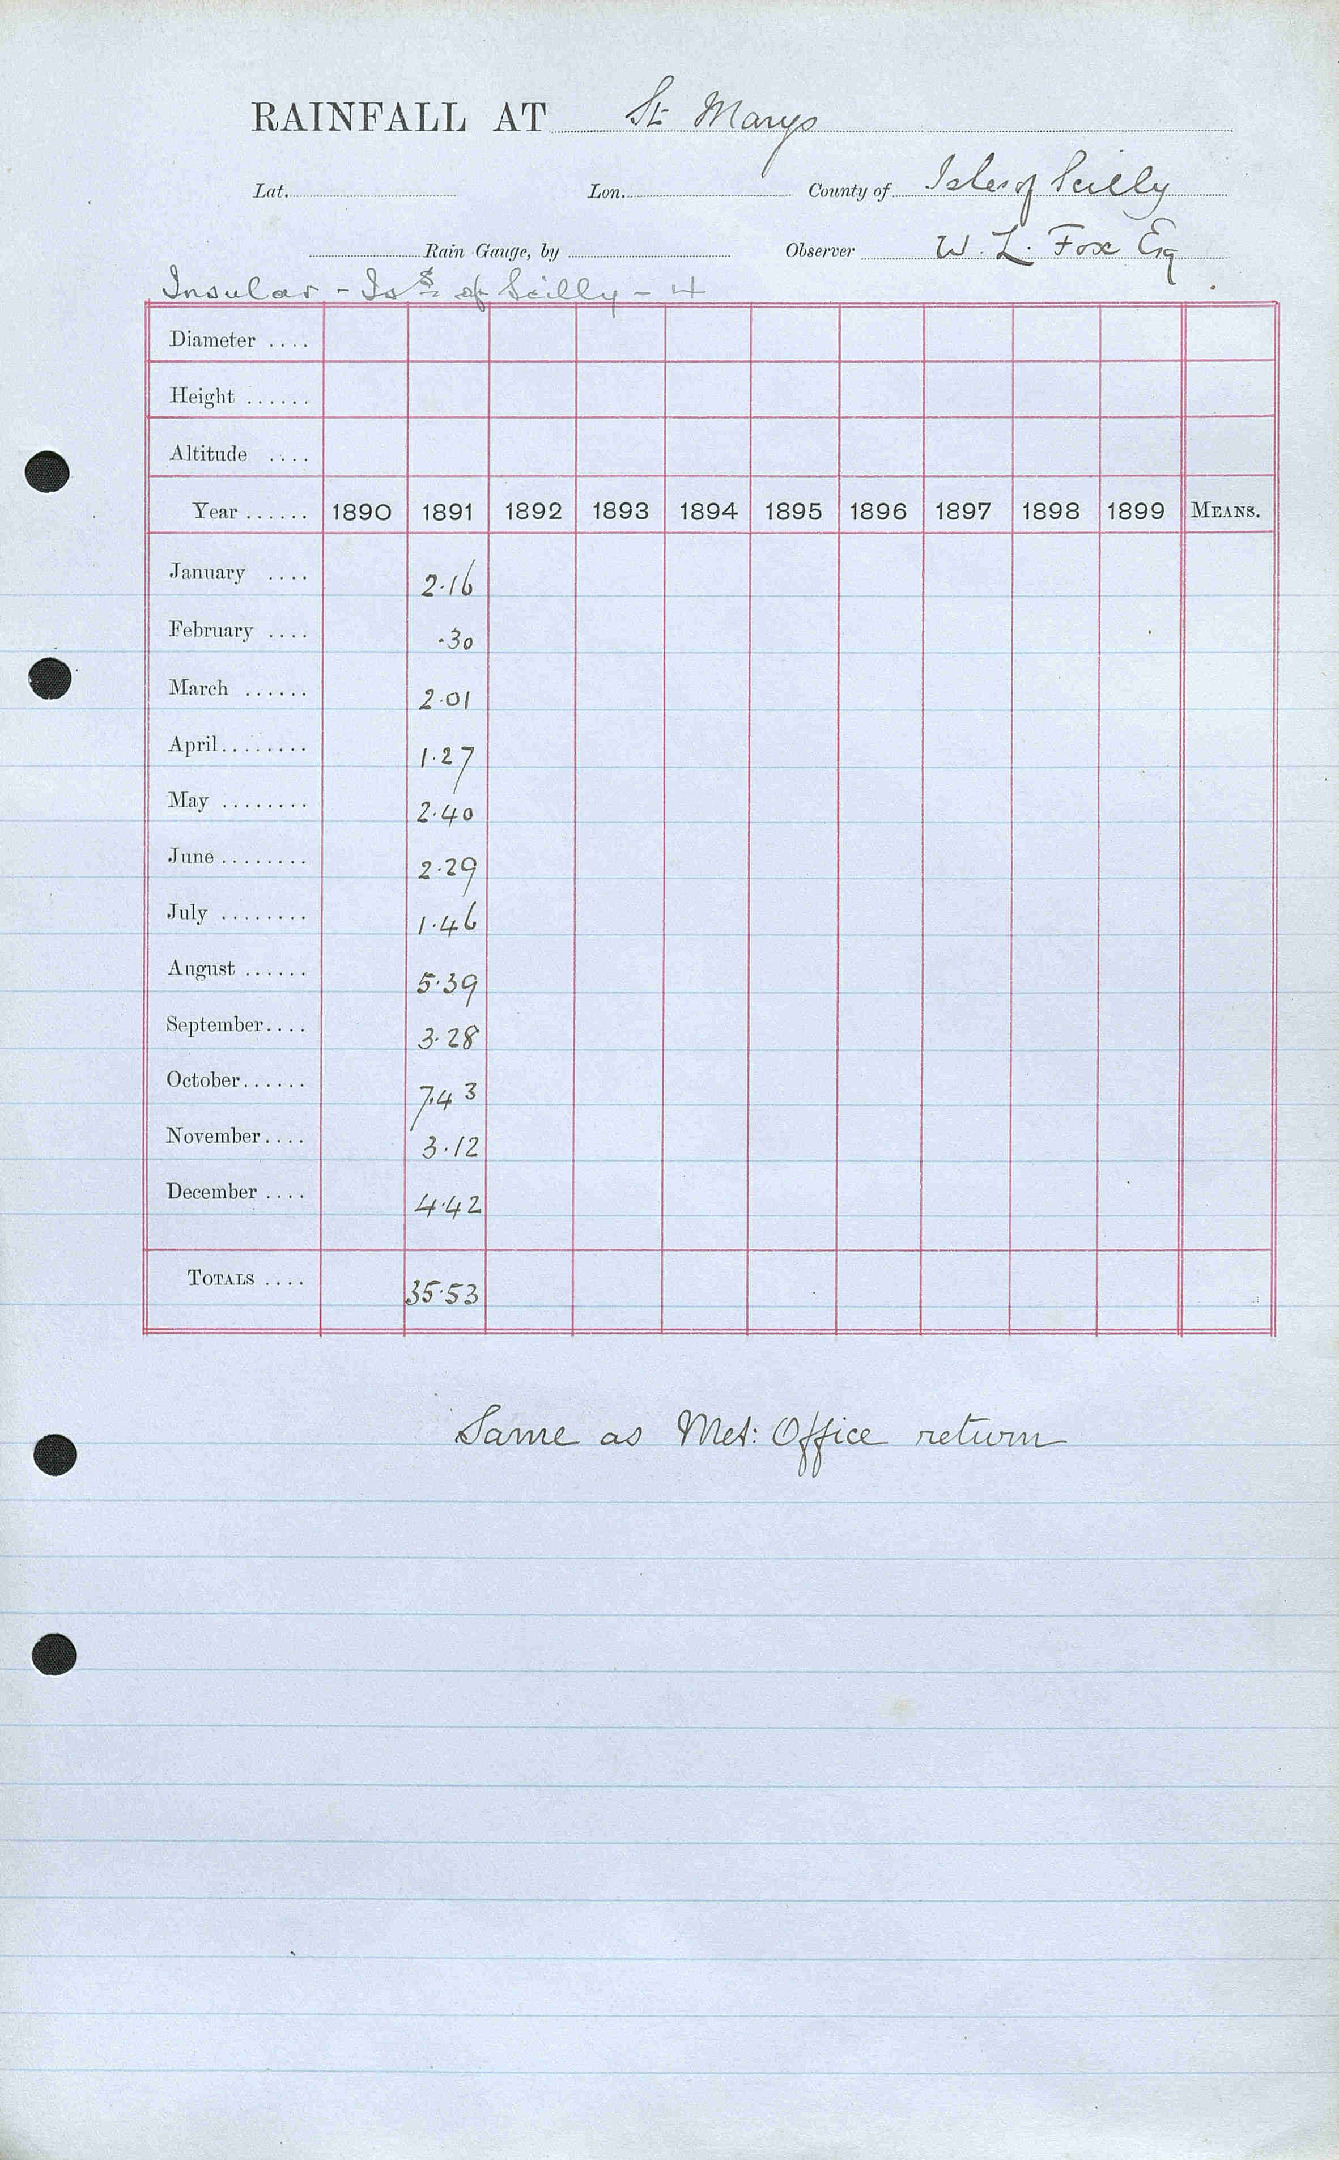 RAINFALL AT St Marys
Lat. Lon. County of Isles of Scilly
Rain Gauge, by Observer W. L. Fox Esq
Insular - Is$ of Scilly - 4
Diameter ....
Height ......
Altitude ....
Year ...... 1890 1891 1892 1893 1894 1895 1896 1897 1898 1899 MEANS.
January .... 2.16
February .... .30
March ...... 2.01
April ........ 1.27
May ........ 2.40
June ........ 2.29
July ........ 1.46
August ...... 5.39
September .... 3.28
October ...... 7.43
November .... 3.12
December .... 4.42
TOTALS .... 35.53
Same as Met: Office return